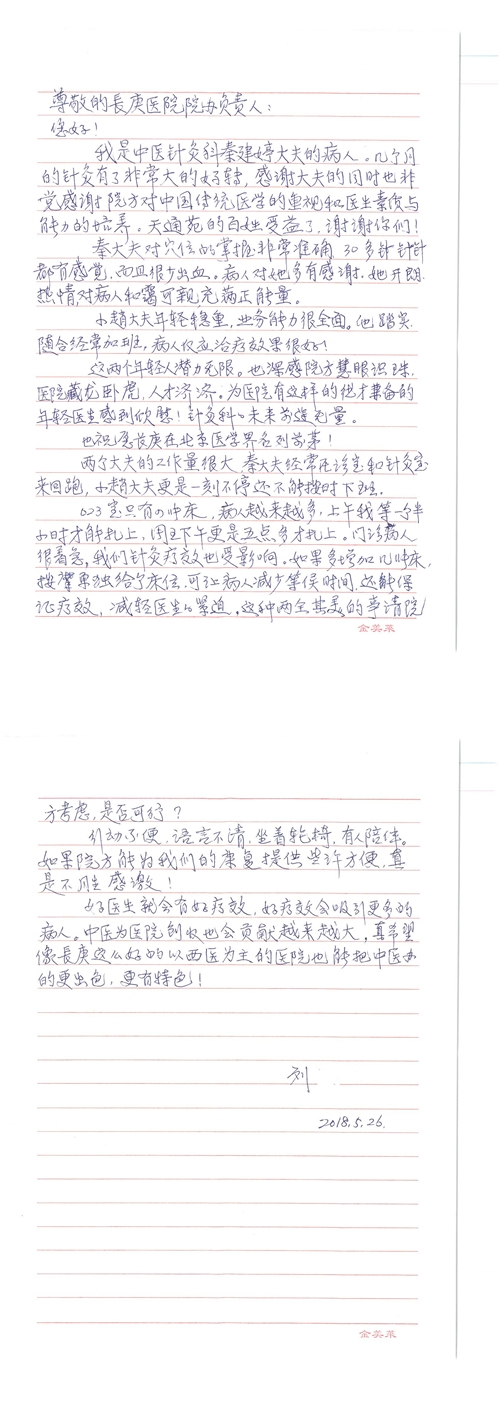 尊敬的長庚医院院办负责人：
您好！
我是中医针灸科秦建婷大夫的病人。几个月
的针灸有了非常大的好转，感谢大夫的同时也非
常感谢院方对中国传统医学的重视和医生素质与
能力的培养。天通苑的百姓受益了，谢谢你们！
秦大夫对穴位的掌握非常准确，30多针针针
都有感觉，而且很少出血。病人对她多有感谢。她开朗、
热情对病人和蔼可亲，充满正能量。
小趙大夫年轻稳重，业务能力很全面。他踏实、
随合经常加班，病人仅应治疗效果很好！
这两个年轻人潜力无限。也深感院方慧眼识珠，
医院藏龙卧虎，人才济济。为医院有这样的德才兼备的
年轻医生感到欣慰！针灸科的未来前途无量。
也祝愿長庚在北京医学界名列前茅！
两个大夫的工作量很大，秦大夫经常在诊室和针灸室
来回跑，小趙大夫更是一刻不停还不能按时下班。
623室只有4冲床，病人越来越多，上午我等一个半
小时才能扎上，周三下午更是五点多才扎上。门诊病人
很着急，我们针灸疗效也受影响。如果多增加几冲床，
按摩单独给个床位，可让病人减少等侯时间，还能保
证疗效，减轻医生的紧迫，这种两全其美的事请院
金英莱
方考虑，是否可行？
引动不便，语言不清，坐着轮椅，有人陪伴。
如果院方能为我们的康复提供些许方便，真
是不月生感激！
好医生就会有好疗效，好疗效会吸引更多的
病人。中医为医院创收也会贡献越来越大，真希望
像長庚这么好的以西医为主的医院也能把中医办
的更出色，更有特色！
刘
2018.5.26.
金英莱